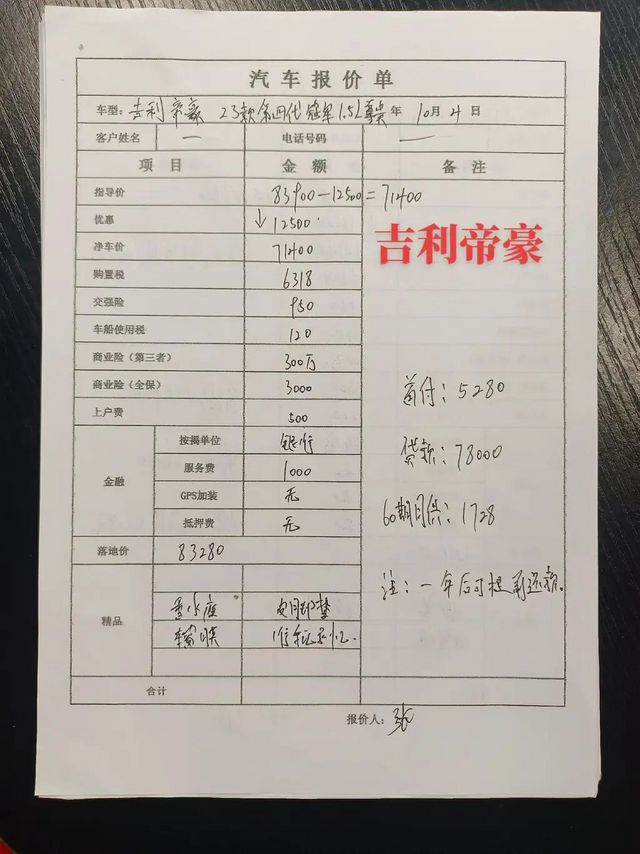 汽车报价单
车型: 吉利帝豪 23款第四代冠军1.5L尊贵 年 10月 4 日
客户姓名 — 电话号码 —
项 目 金 额 备 注
指导价 83900-12500=71400
优惠 ↓12500
吉利帝豪
净车价 71400
购置税 6318
交强险 950
车船使用税 120
商业险(第三者) 300万
商业险(全保) 3000
首付: 5280
上户费 500
金融
按揭单位 银行
贷款: 78000
服务费 1000
GPS加装 无
60期月供: 1728
抵押费 无
落地价 83280
注: 一年后可提前还款。
精品
香水座
车贴膜
合计
报价人: 张